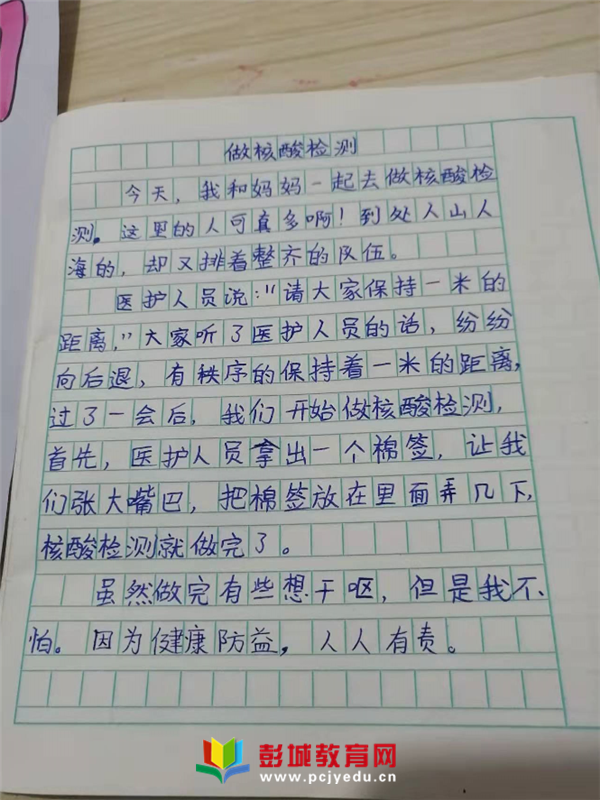 做核酸检测
今天，我和妈妈一起去做核酸检
测。这里的人可真多啊！到处人山人
海的，却又排着整齐的队伍。
医护人员说：“请大家保持一米的
距离，”大家听了医护人员的话，纷纷
向后退，有秩序的保持着一米的距离，
过了一会后，我们开始做核酸检测，
首先，医护人员拿出一个棉签，让我
们张大嘴巴，把棉签放在里面弄几下，
核酸检测就做完了。
虽然做完有些想干呕，但是我不
怕。因为健康防益，人人有责。
彭城教育网
www.pcjyedu.cn